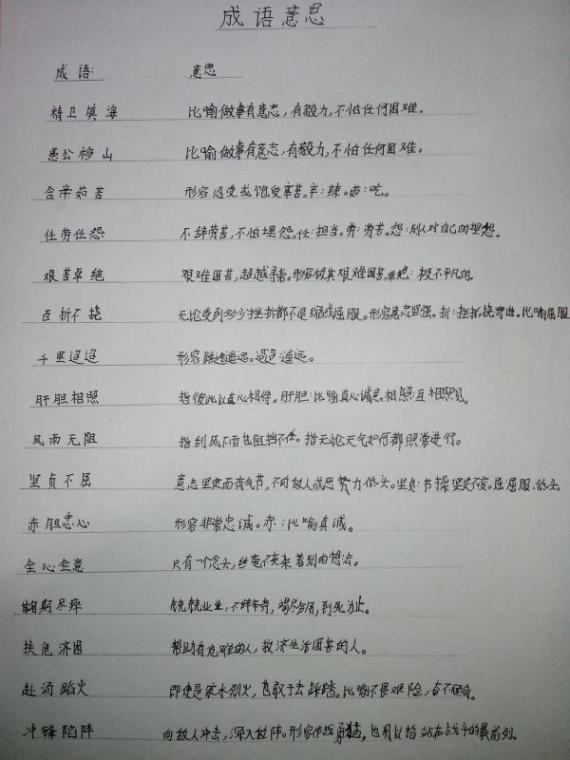 成语意思
成语: 意思
精卫填海 比喻做事有意志,有毅力,不怕任何困难。
愚公移山 比喻做事有意志,有毅力,不怕任何困难。
含辛茹苦 形容忍受或饱受辛苦。辛:辣。茹:吃。
任劳任怨 不辞劳苦,不怕埋怨。任:担当。劳:劳苦。怨:别人对自己的埋怨。
艰苦卓绝 艰难困苦,超越寻常。形容极其艰难困苦。卓绝:极不平凡的。
百折不挠 无论受到多少挫折都不退缩或屈服。形容意志坚强。折:挫折。挠:弯曲。比喻屈服
千里迢迢 形容路途遥远。迢迢:遥远。
肝胆相照 指彼此以真心相待。肝胆:比喻真心诚意。相照:互相照见。
风雨无阻 指刮风下雨也阻挡不住。指无论天气如何都照常进行。
坚贞不屈 意志坚定而有气节,不向敌人或恶势力低头。坚贞:节操坚定不变。屈:屈服、低头
赤胆忠心 形容非常忠诚。赤:比喻真诚。
全心全意 只有一个念头,丝毫不夹杂着别的想法。
鞠躬尽瘁 兢兢业业,不辞辛劳,竭尽全力,到死为止。
扶危济困 帮助有危难的人,救济生活困苦的人。
赴汤蹈火 即使是滚水烈火,也敢于去踩踏。比喻不畏艰险,奋不顾身。
冲锋陷阵 向敌人冲击,深入敌阵。形容作战勇猛,也用以指站在战斗的最前列。